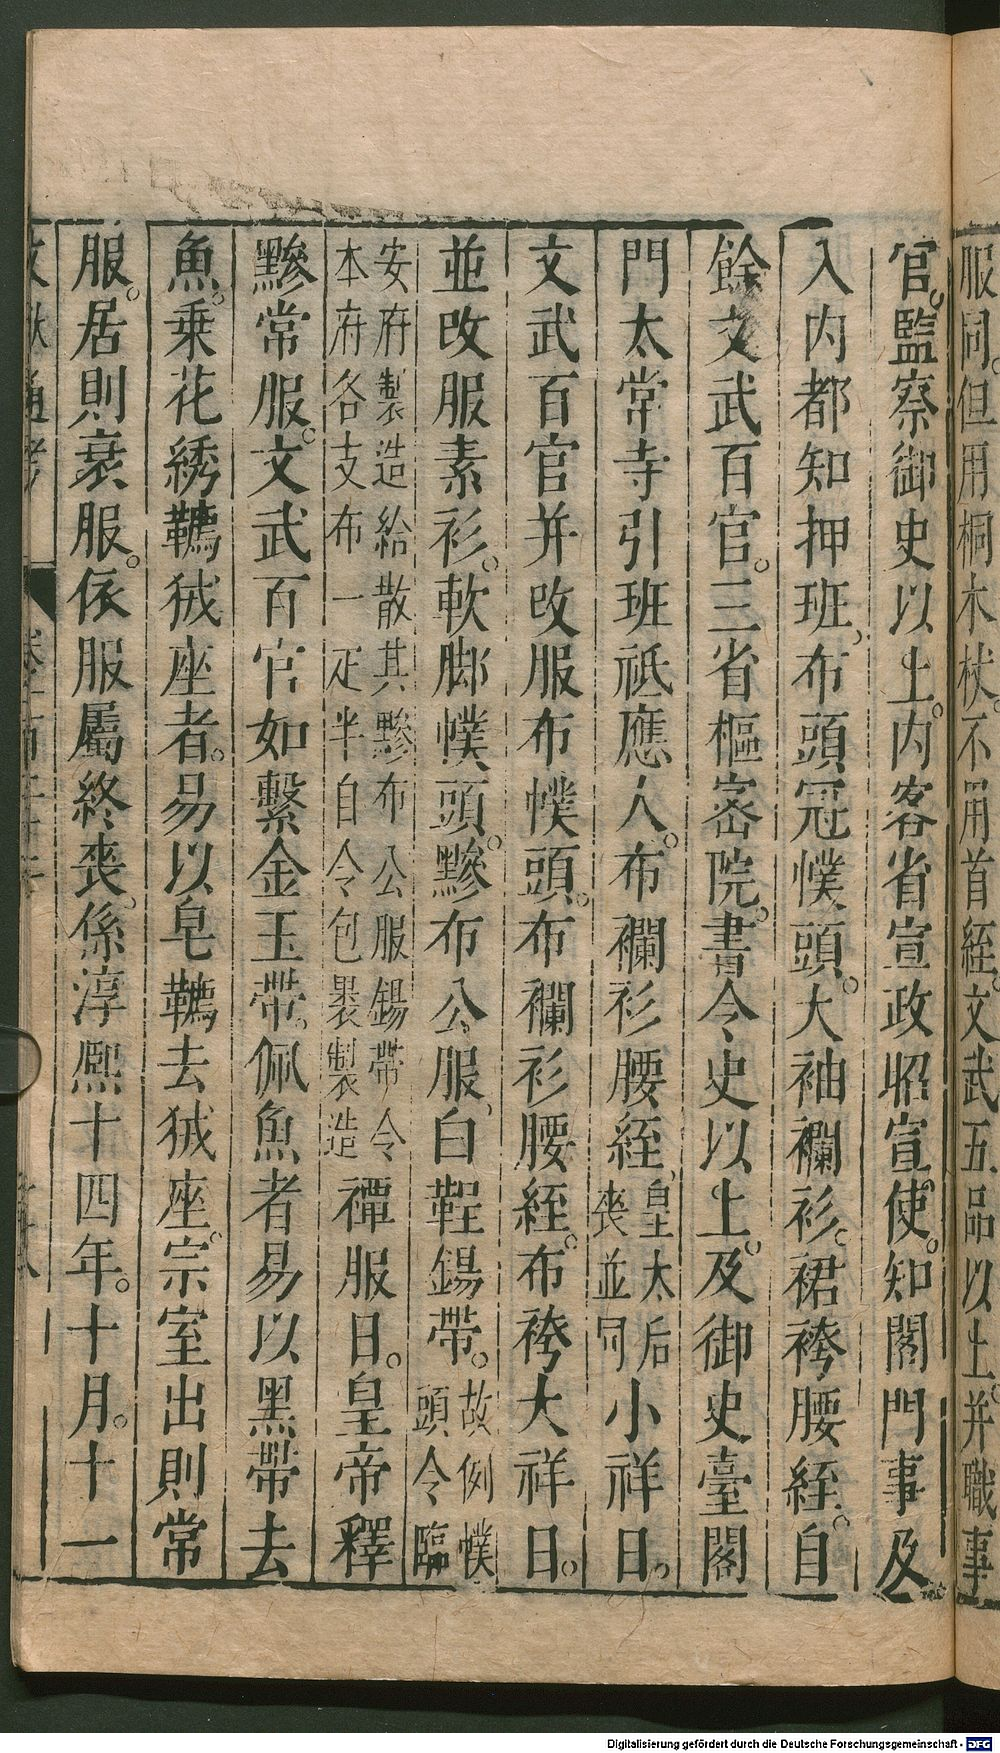 服同。但用桐木杖。不用首絰。文武五品以上。并職事
官。監察御史以上。内客省宣政昭宣使。知閣門事及
入内都知押班、布頭冠幞頭。大袖襴衫。裙袴腰絰。自
餘文武百官。三省樞密院。書令史以上。及御史臺閣
門太常寺引班祗應人。布襴衫腰絰、皇太后喪並同小祥日。
文武百官并改服布幞頭。布襴衫腰絰。布袴大祥日。
並改服素衫。軟脚幞頭。黲布公服、白鞓鍚帶。故例幞頭令臨
安府製造給散其黲布公服鍚帶令本府各支布一疋半自令包裹製造禫服日。皇帝釋
黲常服。文武百官如繫金玉帶。佩魚者易以黑帶去
魚。乗花綉韉狨座者。易以皂韉去狨座。宗室出則常
服。居則衰服。依服屬終喪。係淳熙十四年。十月。十一
Digitalisierung gefördert durch die Deutsche Forschungsgemeinschaft - DFG